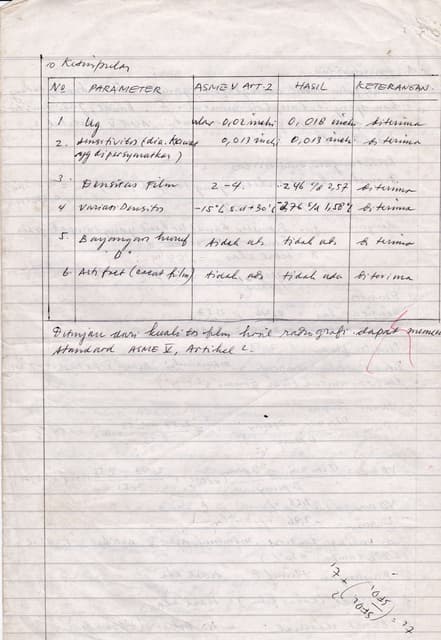 10 Kesimpulan
No PARAMETER ASME V ART. 2 HASIL KETERANGAN
1 Ug 0,02 inchi 0,018 inchi diterima
2. Sensitivitas (dia. kawat 0,013 inchi 0,013 inchi diterima
yg dipersyaratkan)
3 Densitas Film 2 - 4 2,46 s/d 2,57 diterima
4 Variasi Densitas -15% s.d +30% 1,58% diterima
5 Bayangan huruf tidak ada tidak ada diterima
"B"
6 Artifact (cacat film) tidak ada tidak ada diterima
Ditinjau dari kualitas film hasil radiografi dapat
Standard ASME V, Artikel 2.
t2 = (SFD2 / SFD1)² x t1